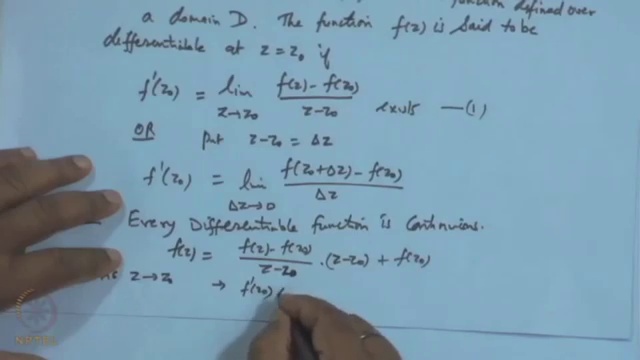 function defined over
a domain D. The function f(z) is said to be
differentiable at z = z₀ if
f'(z₀) = lim z→z₀ (f(z) - f(z₀)) / (z - z₀) exists —(1)
OR put z - z₀ = Δz
f'(z₀) = lim Δz→0 (f(z₀+Δz) - f(z₀)) / Δz
Every Differentiable function is Continuous.
f(z) = (f(z) - f(z₀)) / (z - z₀) . (z - z₀) + f(z₀)
z→z₀ → f'(z₀)
NPTEL